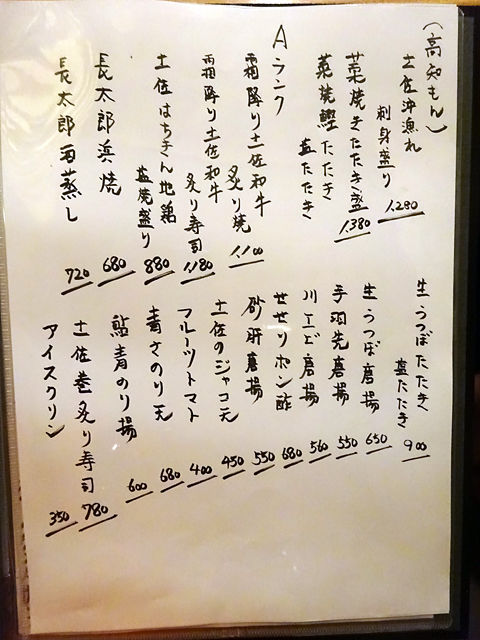 (高知もん)
土佐沖漁れ
刺身盛り 1,280
藁焼きたたき盛 1,380
藁焼鰹たたき
塩たたき
Aランク
霜降り土佐和牛
炙り焼 1,100
霜降り土佐和牛
炙り寿司 1,180
土佐はちきん地鶏
塩焼盛り 880
長太郎浜焼 680
長太郎酒蒸し 720
生うつぼたたき
塩たたき 900
生うつぼ唐揚 650
手羽先唐揚 550
川エビ唐揚 560
せせりポン酢 680
砂肝唐揚 550
土佐のジャコ天 450
フルーツトマト 400
青さのり天 680
鮎青のり揚 600
土佐巻炙り寿司 780
アイスクリン 350